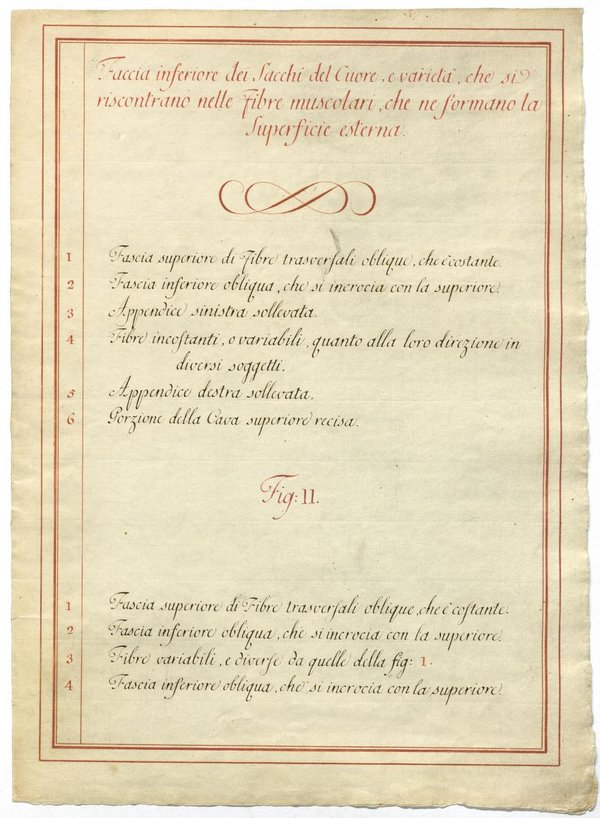 Faccia inferiore dei Sacchi del Cuore, e varietà, che si
riscontrano nelle Fibre muscolari, che ne formano la
Superficie esterna.
1 Fascia superiore di Fibre trasversali oblique, che è costante.
2 Fascia inferiore obliqua, che si incrocia con la superiore.
3 Appendice sinistra sollevata.
4 Fibre incostanti, o variabili, quanto alla loro direzione in
diversi soggetti.
5 Appendice destra sollevata.
6 Porzione della Cava superiore recisa.
Fig: II.
1 Fascia superiore di Fibre trasversali oblique, che è costante.
2 Fascia inferiore obliqua, che si incrocia con la superiore.
3 Fibre variabili, e diverse da quelle della fig: 1.
4 Fascia inferiore obliqua, che si incrocia con la superiore.